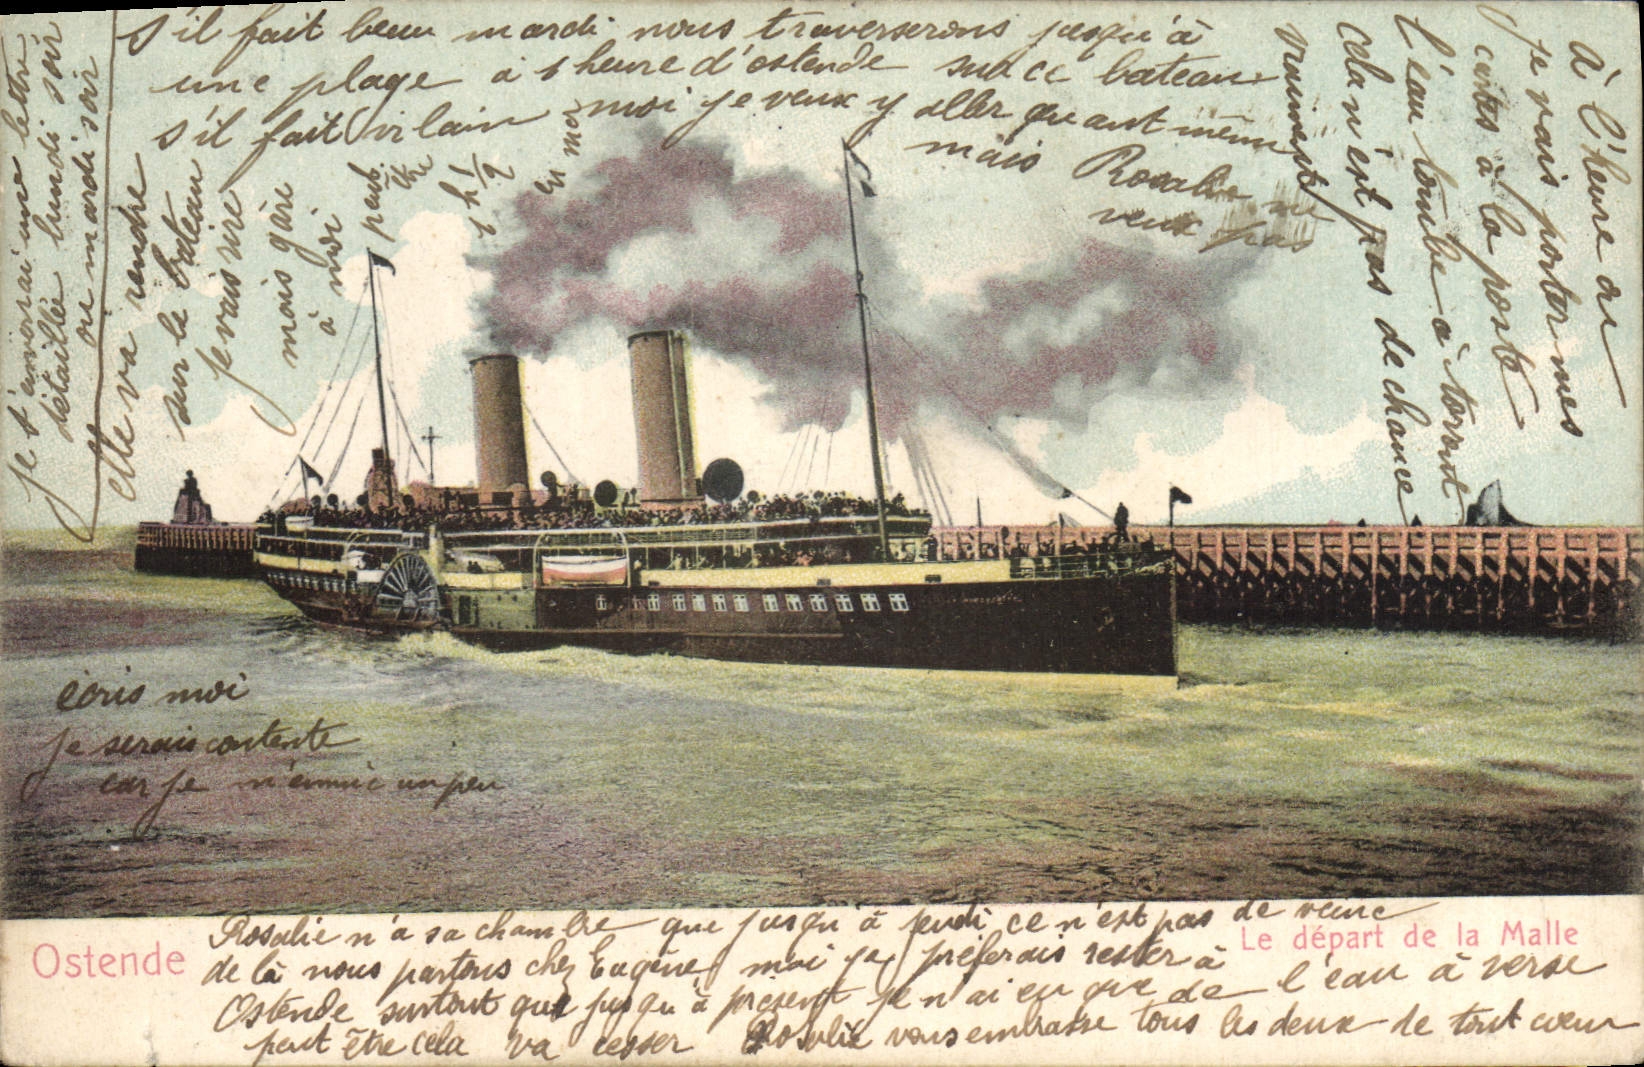 S'il fait beau mardi nous traverserons jusqu'à
une plage à 1 heure d'ostende sur ce bateau
s'il fait vilain moi je veux y aller quant même
mais Rosalie ne
veux pas
vraiment
cela n'est pas de chance
l'eau tombe à torrent
à l'heure où
je vais porter mes
cartes à la poste
je t'enverrai une lettre
détaillée lundi soir
ou mardi soir
elle va rendre
sur le bateau
je vais rire
mais gare
à moi
peut
être
1 h 1/2
en mer
écris moi
je serais contente
car je m'ennuie un peu
Rosalie n'a sa chambre que jusqu'à jeudi ce n'est pas de veine
de là nous partons chez Eugène moi je préferais rester à
Ostende surtout que jusqu'à présent je n'ai eu que de l'eau à verse
peut être cela va cesser Rosalie vous embrasse tous les deux de tout cœur
Ostende
Le départ de la Malle